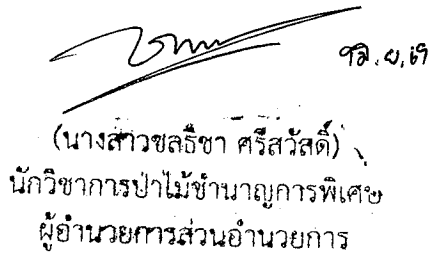 (นางสาวชลธิชา ศรีสวัสดิ์)
นักวิชาการป่าไม้ชำนาญการพิเศษ
ผู้อำนวยการส่วนอำนวยการ